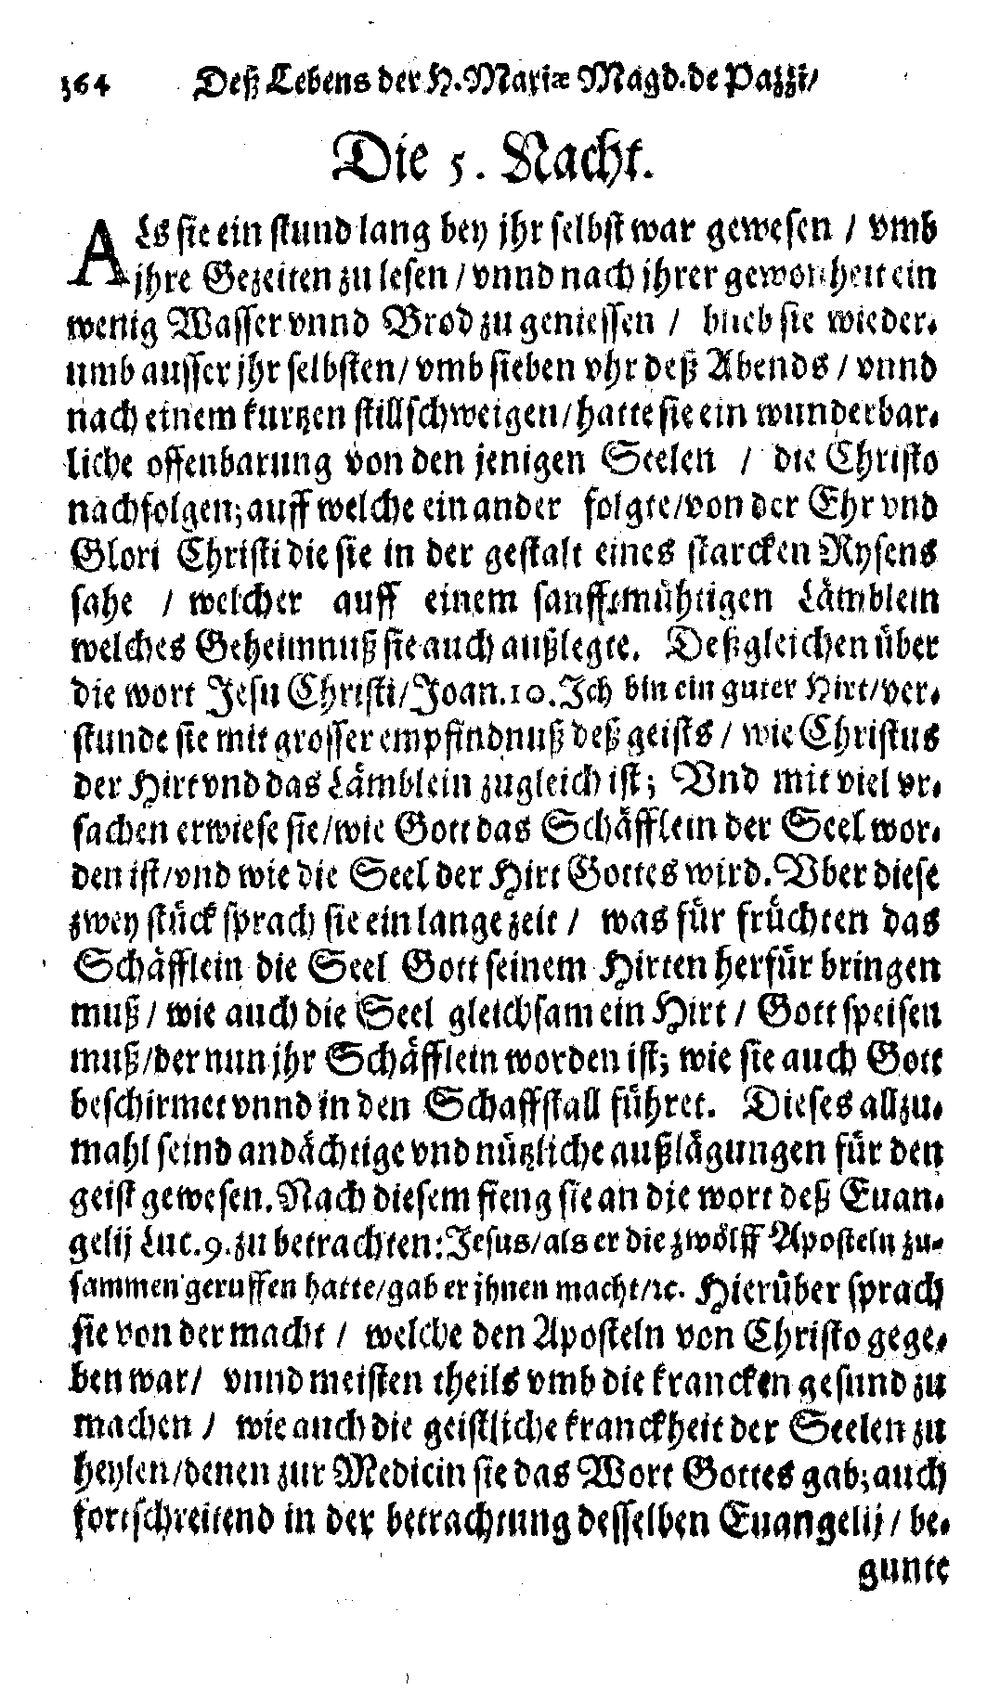 364 Deß Lebens der H. Mariæ Magd. de Pazzi/
Die 5. Nacht.
ALs sie ein stund lang bey jhr selbst war gewesen / vmb
jhre Gezeiten zu lesen / vnnd nach jhrer gewonheit ein
wenig Wasser vnnd Brod zu geniessen / blieb sie wieder-
umb ausser jhr selbsten / vmb sieben vhr deß Abends / vnnd
nach einem kurtzen stillschweigen / hatte sie ein wunderbar-
liche offenbarung von den jenigen Seelen / die Christo
nachfolgen; auff welche ein ander folgte / von der Ehr vnd
Glori Christi die sie in der gestalt eines starcken Rysens
sahe / welcher auff einem sanfftmühtigen Lämblein
welches Geheimnuß sie auch außlegte. Deßgleichen über
die wort Jesu Christi / Joan. 10. Ich bin ein guter Hirt / ver-
stunde sie mit grosser empfindnuß deß geists / wie Christus
der Hirt vnd das Lämblein zugleich ist; Vnd mit viel vr-
sachen erwiese sie / wie Gott das Schäfflein der Seel wor-
den ist / vnd wie die Seel der Hirt Gottes wird. Vber diese
zwey stück sprach sie ein lange zeit / was für früchten das
Schäfflein die Seel Gott seinem Hirten herfür bringen
muß / wie auch die Seel gleichsam ein Hirt / Gott speisen
muß / der nun jhr Schäfflein worden ist; wie sie auch Gott
beschirmet vnnd in den Schaffstall führet. Dieses allzu-
mahl seind andächtige vnd nützliche außlägungen für den
geist gewesen. Nach diesem fieng sie an die wort deß Euan-
gelij Luc. 9. zu betrachten: Jesus / als er die zwölff Aposteln zu-
sammen geruffen hatte / gab er jhnen macht / ꝛc. Hierüber sprach
sie von der macht / welche den Aposteln von Christo gege-
ben war / vnnd meisten theils vmb die krancken gesund zu
machen / wie auch die geistliche kranckheit der Seelen zu
heylen / denen zur Medicin sie das Wort Gottes gab; auch
fortschreitend in der betrachtung desselben Euangelij / be-
gunte